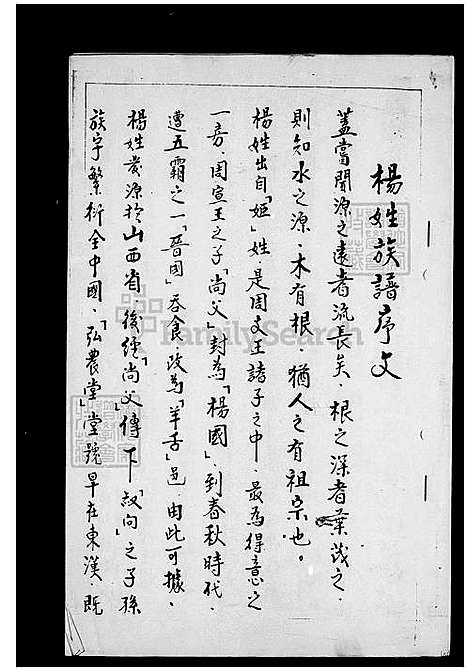 楊姓族譜序文
蓋嘗聞源之遠者流長矣、根之深者葉茂之、
則知水之源、木有根、猶人之有祖宗也。
楊姓出自「姬」姓、是周文王諸子之中、最為得意之
一房、周宣王之子「尚父」封為「楊國」、到春秋時代、
遭五霸之一「晉國」吞食、改為「羊舌」邑、由此可據、
楊姓發源於山西省、後經「尚父」傳下「叔向」之子孫
族字繁衍全中國、「弘農堂」堂號早在東漢、既
FamilySearch